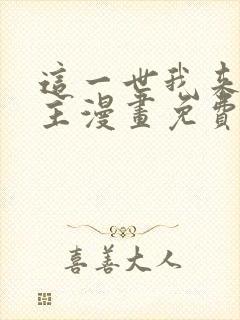 這一世我來
主漫畫免費
喜善大人